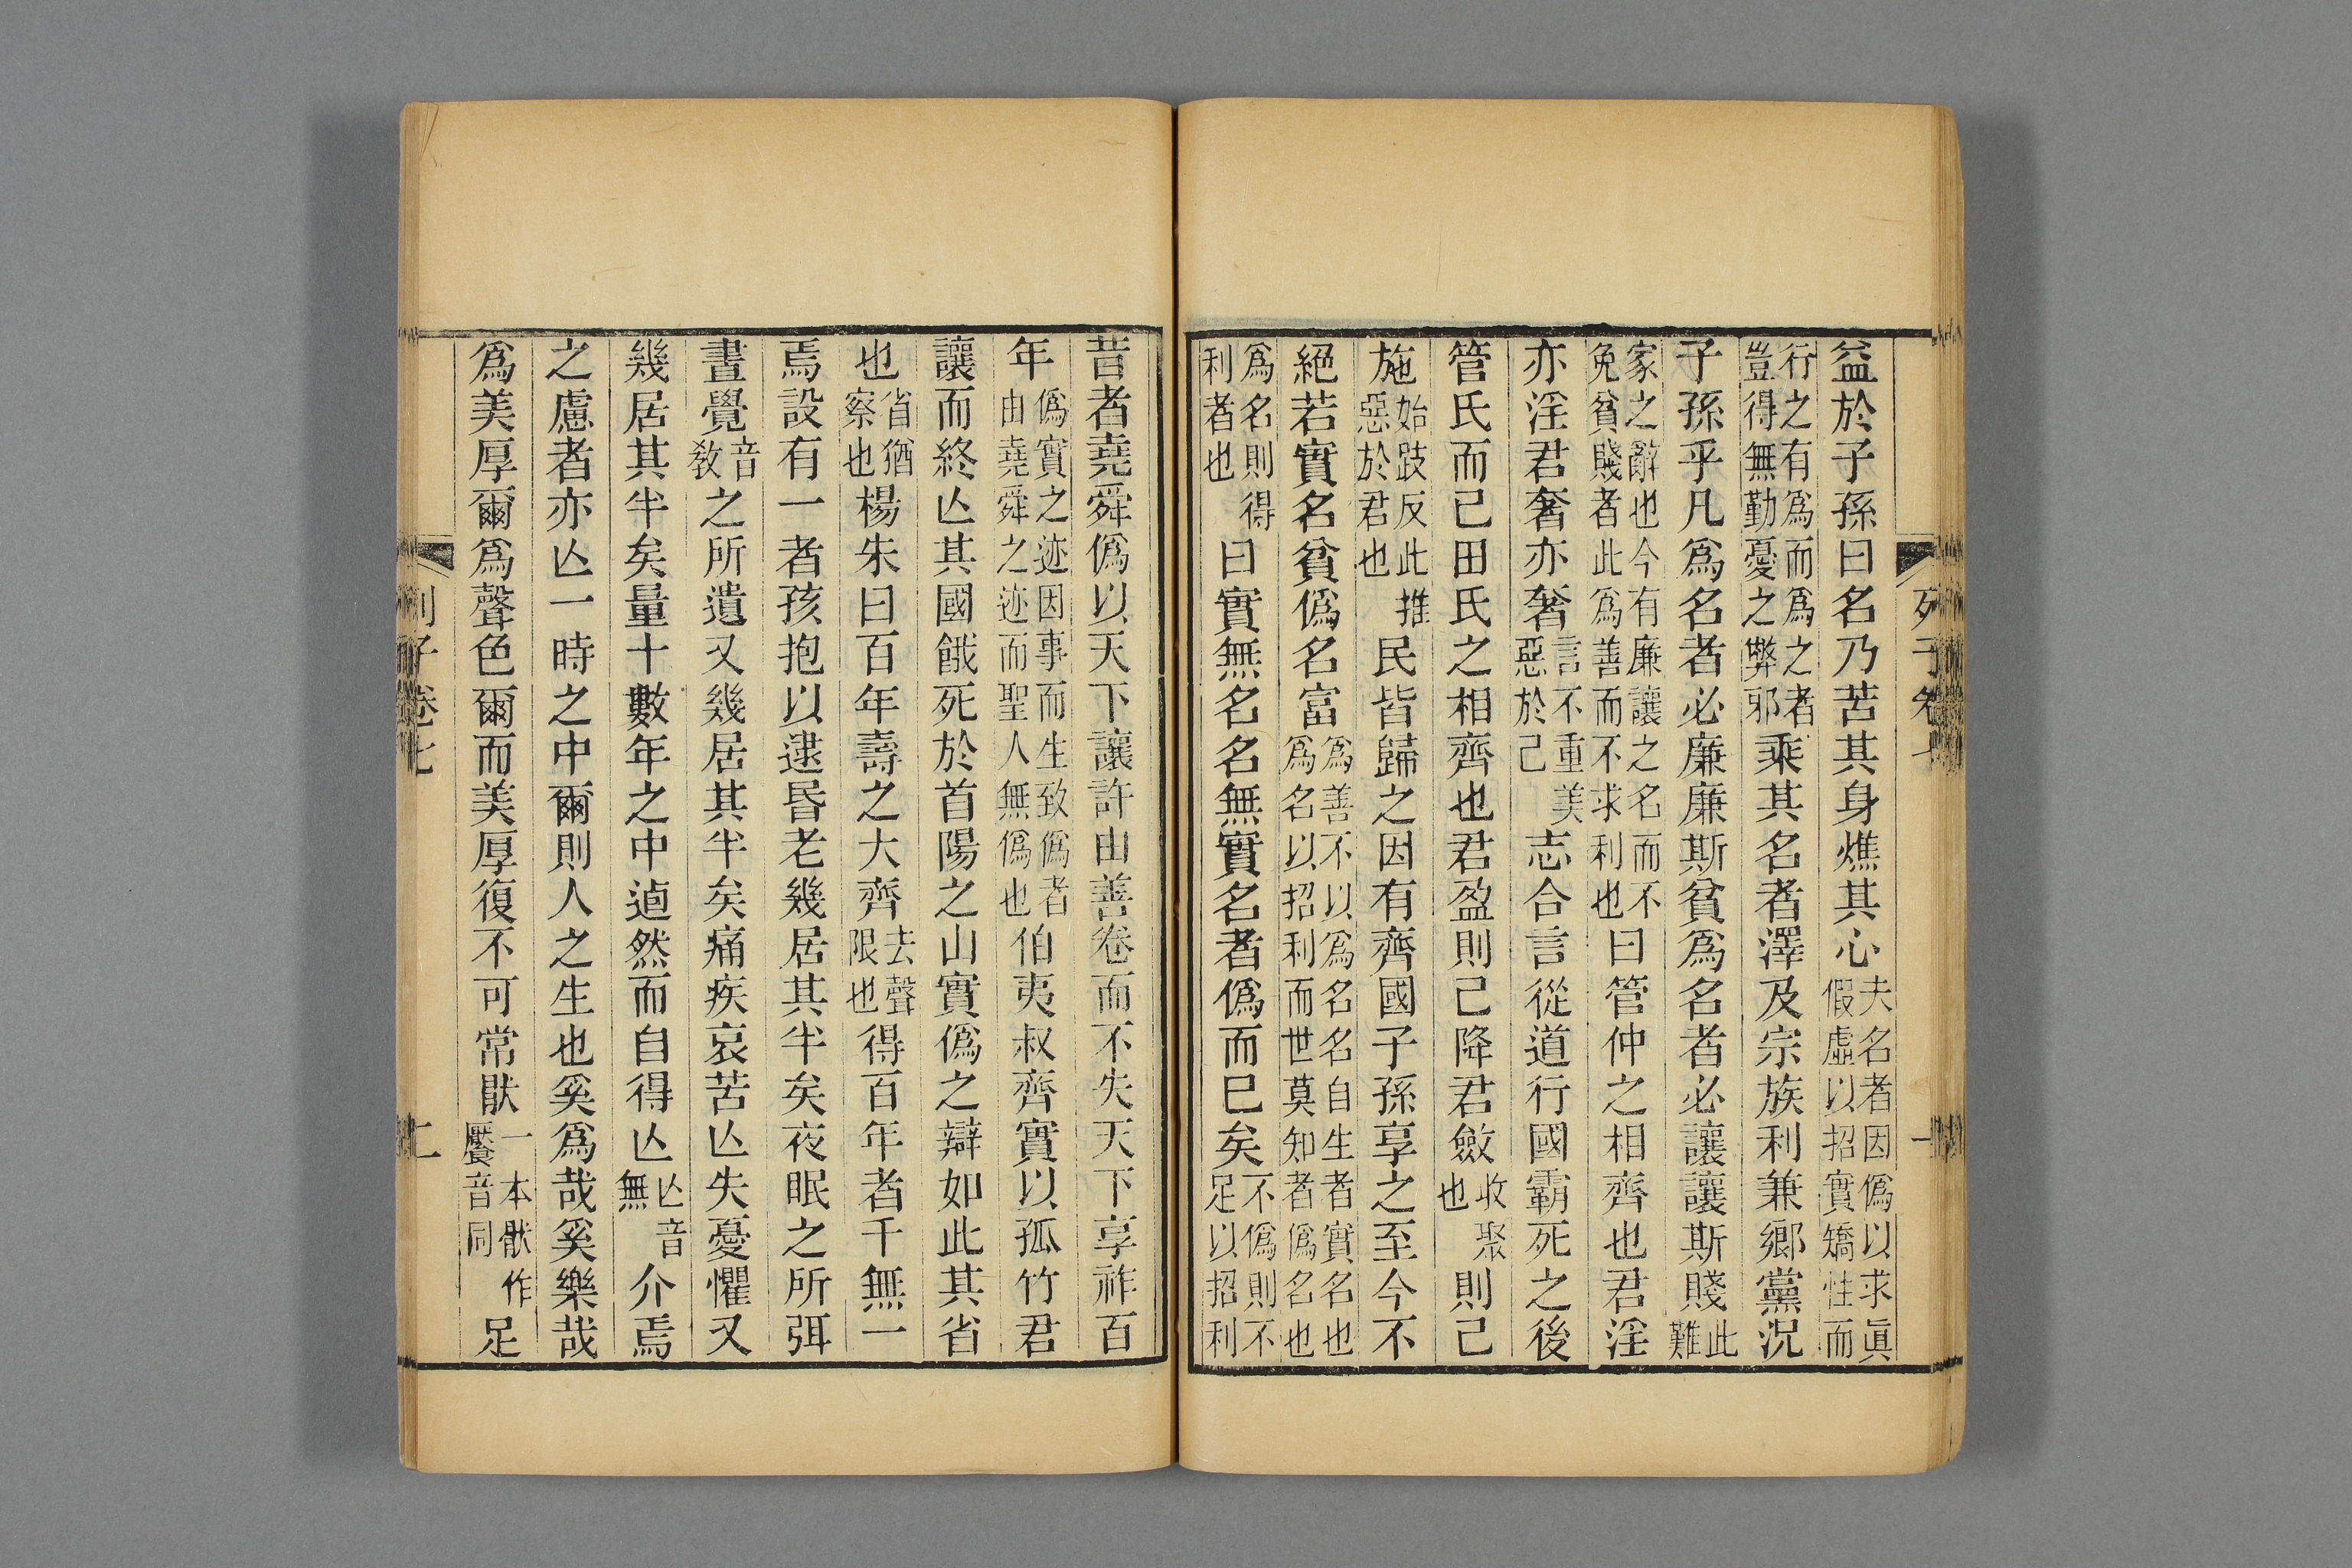 益於子孫曰名乃苦其身燋其心夫名者因僞以求眞假虛以招實矯性而
行之有爲而爲之者豈得無勤憂之弊邪乘其名者澤及宗族利兼鄉黨況
子孫乎凡爲名者必廉廉斯貧爲名者必讓讓斯賤此難
家之辭也今有廉讓之名而不免貧賤者此爲善而不求利也曰管仲之相齊也君淫
亦淫君奢亦奢言不重美惡於己志合言從道行國霸死之後
管氏而已田氏之相齊也君盈則己降君斂收聚也則己
施始跂反此推惡於君也民皆歸之因有齊國子孫享之至今不
絕若實名貧僞名富爲善不以爲名名自生者實名也爲名以招利而世莫知者僞名也
爲名則得利者也曰實無名名無實名者僞而巳矣不僞則不足以招利
昔者堯舜僞以天下讓許由善卷而不失天下享祚百
年僞實之迹因事而生致僞者由堯舜之迹而聖人無僞也伯夷叔齊實以孤竹君
讓而終亾其國餓死於首陽之山實僞之辯如此其省
也省猶察也楊朱曰百年壽之大齊去聲限也得百年者千無一
焉設有一者孩抱以逮昬老幾居其半矣夜眠之所弭
晝覺音敎之所遺又幾居其半矣痛疾哀苦亾失憂懼又
幾居其半矣量十數年之中逌然而自得亾亾音無介焉
之慮者亦亾一時之中爾則人之生也奚爲哉奚樂哉
爲美厚爾爲聲色爾而美厚復不可常猒一本猒作饜音同足
列子卷七
二